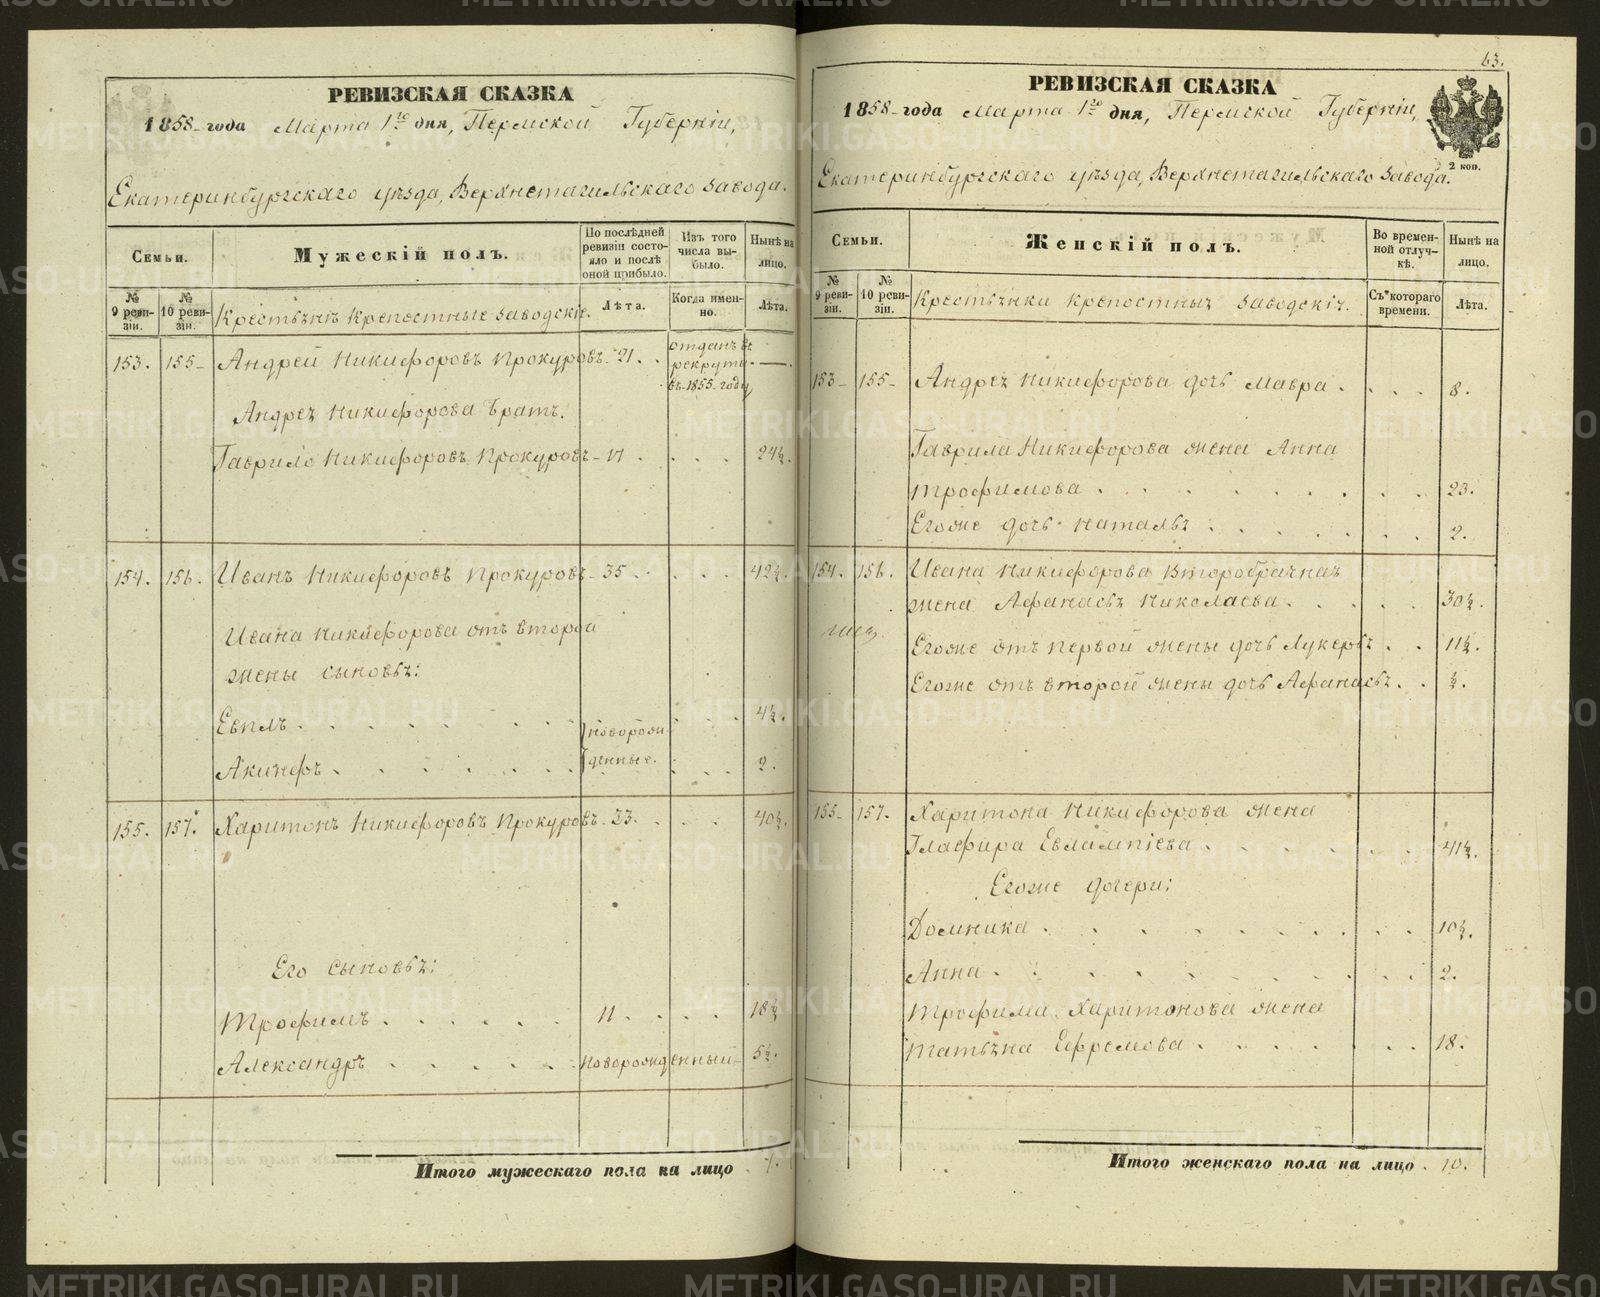 РЕВИЗСКАЯ СКАЗКА
1858-года Марта 1го дня, Пермской Губерніи,
Екатеринбургскаго уѣзда, Верхнетагильскаго завода.
Семьи.
Мужескій полъ.
По послѣдней ревизіи состояло и послѣ оной прибыло.
Изъ того числа выбыло.
Нынѣ на лицо.
№ 9 ревизіи.
№ 10 ревизіи.
Крестьянѣ крепостные заводскіе.
Лѣта.
Когда именно.
Лѣта.
153. 155- Андрей Никифоровъ Прокуровъ- 21. отданъ въ рекруты въ 1855. году —
Андрея Никифорова братъ.
Гаврило Никифоровъ Прокуровъ- 17. 24½.
154. 156. Иванъ Никифоровъ Прокуровъ- 35. 42½.
Ивана Никифорова отъ второй
жены сыновья:
Евплъ. 4½.
новорожденные.
Акинфъ. 2.
155. 157. Харитонъ Никифоровъ Прокуровъ- 33. 40½.
Его сыновья:
Трофимъ. 11. 18½
Александръ новорожденный- 5½.
Итого мужескаго пола на лицо 7.
63.
РЕВИЗСКАЯ СКАЗКА
1858-года Марта 1го дня, Пермской Губерніи,
2 коп.
Екатеринбургскаго уѣзда, Верхнетагильскаго завода.
Семьи.
Женскій полъ.
Во временной отлучкѣ.
Нынѣ на лицо.
№ 9 ревизіи.
№ 10 ревизіи.
Крестьянки крепостныя заводскія.
Съ котораго времени.
Лѣта.
153- 155- Андрея Никифорова дочь Мавра. 8.
Гаврила Никифорова жена Анна
Трофимова. 23.
Егоже дочь Наталья. 2.
154. 156. Ивана Никифорова второбрачная
жена Афанасья Николаева. 30½.
Егоже отъ первой жены дочь Лукерья. 11½.
Егоже отъ второй жены дочь Афанасья. ½.
155- 157. Харитона Никифорова жена
Глафира Евлампіева. 41½.
Егоже дочери:
Домника. 10½.
Анна. 2.
Трофима Харитонова жена
Татьяна Ефремова. 18.
Итого женскаго пола на лицо. 10.
METRIKI.GASO-URAL.RU